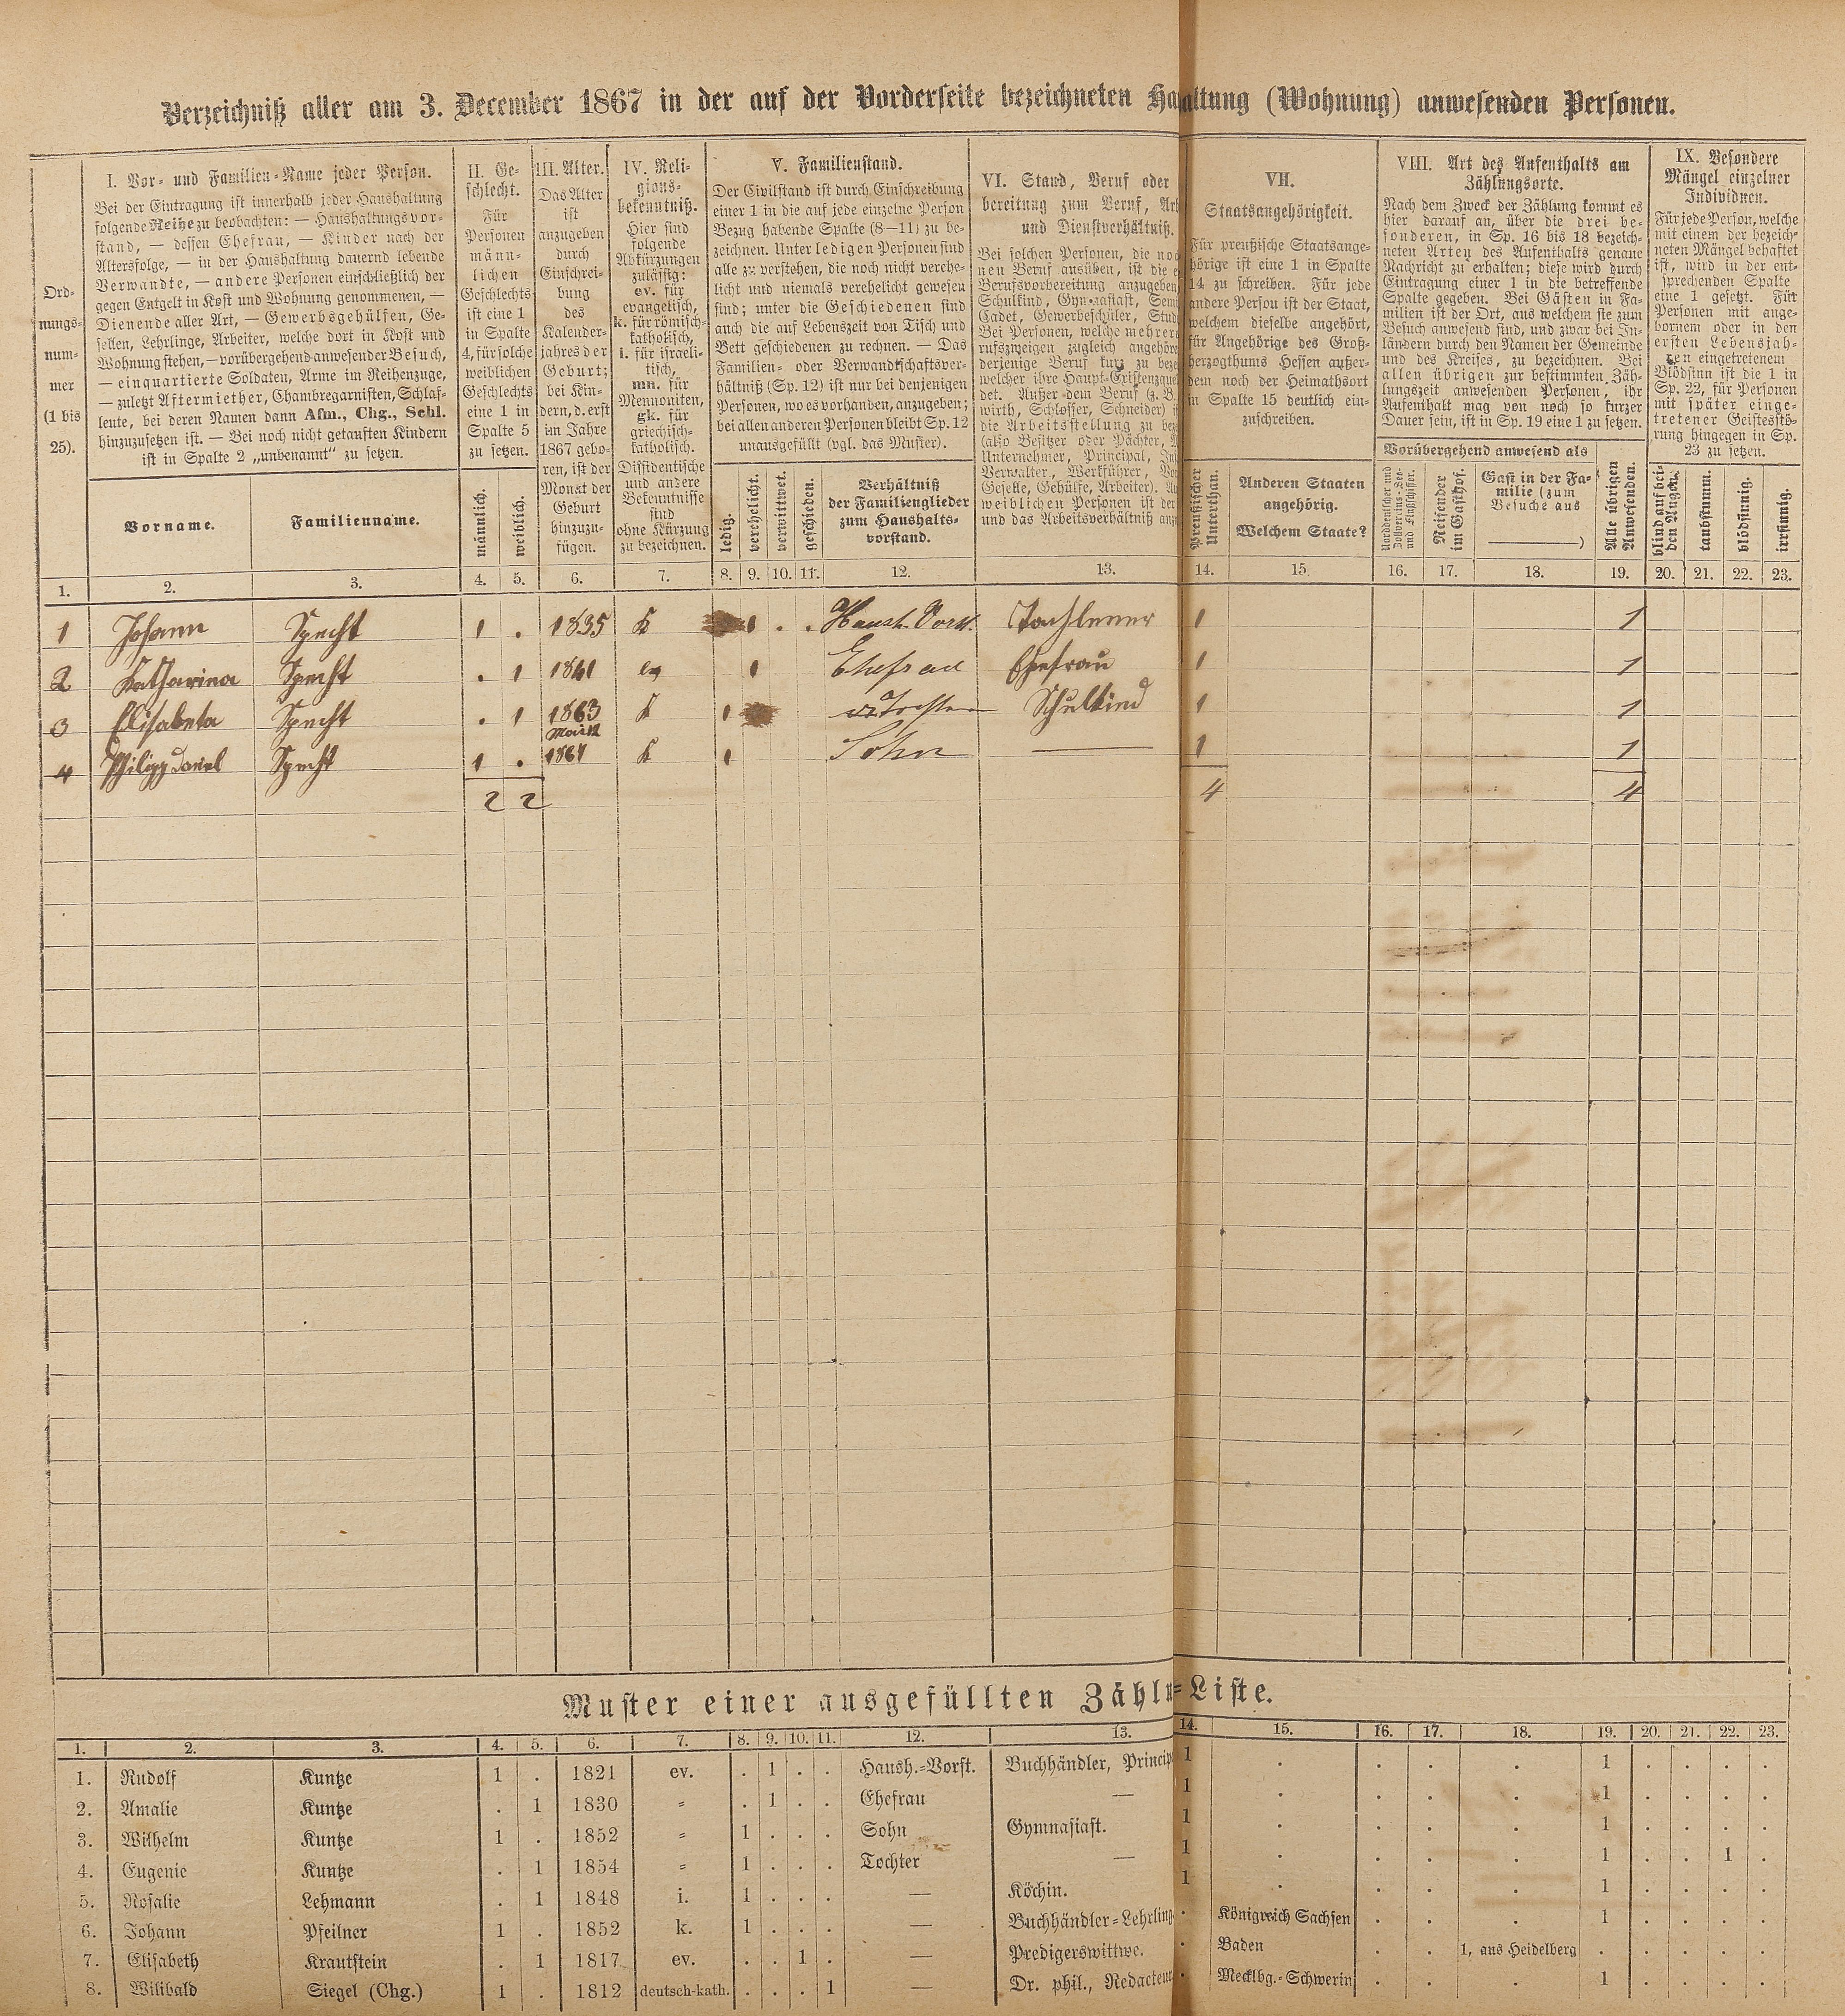 Verzeichniß aller am 3. December 1867 in der auf der Vorderseite bezeichneten Ha ltung (Wohnung) anwesenden Personen.
Ord-
nungs-
num-
mer
(1 bis
25).
I. Vor- und Familien-Name jeder Person.
Bei der Eintragung ist innerhalb jeder Haushaltung
folgende Reihe zu beobachten: — Haushaltungsvor-
stand, — dessen Ehefrau, — Kinder nach der
Altersfolge, — in der Haushaltung dauernd lebende
Verwandte, — andere Personen einschließlich der
gegen Entgelt in Kost und Wohnung genommenen, —
Dienende aller Art, — Gewerbsgehülfen, Ge-
sellen, Lehrlinge, Arbeiter, welche dort in Kost und
Wohnung stehen, — vorübergehend anwesender Besuch,
— einquartierte Soldaten, Arme im Reihenzuge,
— zuletzt Aftermiether, Chambregarnisten, Schlaf-
leute, bei deren Namen dann Afm., Chg., Schl.
hinzuzusetzen ist. — Bei noch nicht getauften Kindern
ist in Spalte 2 „unbenannt“ zu setzen.
Vorname.
Familienname.
II. Ge-
schlecht.
Für
Personen
männ-
lichen
Geschlechts
ist eine 1
in Spalte
4, für solche
weiblichen
Geschlechts
eine 1 in
Spalte 5
zu setzen.
männlich.
weiblich.
III. Alter.
Das Alter
ist
anzugeben
durch
Einschrei-
bung
des
Kalender-
jahres der
Geburt;
bei Kin-
dern, d. erst
im Jahre
1867 gebo-
ren, ist der
Monat der
Geburt
hinzuzu-
fügen.
IV. Reli-
gions-
bekenntniß.
Hier sind
folgende
Abkürzungen
zulässig:
ev. für
evangelisch,
k. für römisch-
katholisch,
i. für israeli-
tisch,
mn. für
Mennoniten,
gk. für
griechisch-
katholisch.
Dissidentische
und andere
Bekenntnisse
sind
ohne Kürzung
zu bezeichnen.
V. Familienstand.
Der Civilstand ist durch Einschreibung
einer 1 in die auf jede einzelne Person
Bezug habende Spalte (8—11) zu be-
zeichnen. Unter ledigen Personen sind
alle zu verstehen, die noch nicht verehe-
licht und niemals verehelicht gewesen
sind; unter die Geschiedenen sind
auch die auf Lebenszeit von Tisch und
Bett geschiedenen zu rechnen. — Das
Familien- oder Verwandtschaftsver-
hältniß (Sp. 12) ist nur bei denjenigen
Personen, wo es vorhanden, anzugeben;
bei allen anderen Personen bleibt Sp. 12
unausgefüllt (vgl. das Muster).
ledig.
verehelicht.
verwittwet.
geschieden.
Verhältniß
der Familienglieder
zum Haushalts-
vorstand.
VI. Stand, Beruf oder
bereitung zum Beruf, Arb
und Dienstverhältniß.
Bei solchen Personen, die no
nen Beruf ausüben, ist die e
Berufsvorbereitung anzugeben
Schulkind, Gymnasiast, Sem
Cadet, Gewerbeschüler, Stud
Bei Personen, welche mehrer
rufszweigen zugleich angehör
derjenige Beruf kurz zu beze
welcher ihre Haupt-Existenzque
det. Außer dem Beruf (z. B.
wirth, Schlosser, Schneider) i
die Arbeitsstellung zu bez
(also Besitzer oder Pächter,
Unternehmer, Principal,
Verwalter, Werkführer,
Geselle, Gehülfe, Arbeiter).
weiblichen Personen ist der
und das Arbeitsverhältniß anz
VII.
Staatsangehörigkeit.
Für preußische Staatsange-
hörige ist eine 1 in Spalte
14 zu schreiben. Für jede
andere Person ist der Staat,
welchem dieselbe angehört,
für Angehörige des Groß-
herzogthums Hessen außer-
dem noch der Heimathsort
in Spalte 15 deutlich ein-
zuschreiben.
Preußischer
Unterthan.
Anderen Staaten
angehörig.
Welchem Staate?
VIII. Art des Aufenthalts am
Zählungsorte.
Nach dem Zweck der Zählung kommt es
hier darauf an, über die drei be-
sonderen, in Sp. 16 bis 18 bezeich-
neten Arten des Aufenthalts genaue
Nachricht zu erhalten; diese wird durch
Eintragung einer 1 in die betreffende
Spalte gegeben. Bei Gästen in Fa-
milien ist der Ort, aus welchem sie zum
Besuch anwesend sind, und zwar bei In-
ländern durch den Namen der Gemeinde
und des Kreises, zu bezeichnen. Bei
allen übrigen zur bestimmten Zäh-
lungszeit anwesenden Personen, ihr
Aufenthalt mag von noch so kurzer
Dauer sein, ist in Sp. 19 eine 1 zu setzen.
Vorübergehend anwesend als
Norddeutscher und
Zollvereins-See-
und Flußschiffer.
Reisender
im Gasthof.
Gast in der Fa-
milie (zum
Besuche aus
)
Alle übrigen
Anwesenden.
IX. Besondere
Mängel einzelner
Individuen.
Für jede Person, welche
mit einem der bezeich-
neten Mängel behaftet
ist, wird in der ent-
sprechenden Spalte
eine 1 gesetzt. Für
Personen mit ange-
bornem oder in den
ersten Lebensjah-
ren eingetretenem
Blödsinn ist die 1 in
Sp. 22, für Personen
mit später einge-
tretener Geistesstö-
rung hingegen in Sp.
23 zu setzen.
blind auf bei-
den Augen.
taubstumm.
blödsinnig.
irrsinnig.
1. 2. 3. 4. 5. 6. 7. 8. 9. 10. 11. 12. 13. 14. 15. 16. 17. 18. 19. 20. 21. 22. 23.
1 Johann Specht 1 . 1835 K 1 . . Haush. Vorst. 1 1
2 Katharina Specht . 1 1841 ev 1 Ehefrau Ehefrau 1 1
3 Elisabeta Specht . 1 1863 K 1 Tochter Schulkind 1 1
4 Philipp Daniel Specht 1 . 1867 K 1 Sohn — 1 1
2 2 4 4
Muster einer ausgefüllten Zähl-Liste.
1. 2. 3. 4. 5. 6. 7. 8. 9. 10. 11. 12. 13. 14. 15. 16. 17. 18. 19. 20. 21. 22. 23.
1. Rudolf Kuntze 1 . 1821 ev. . 1 . . Haush.-Vorst. Buchhändler, Princip 1 . . . . 1 . . . .
2. Amalie Kuntze . 1 1830 = . 1 . . Ehefrau — 1 . . . . 1 . . . .
3. Wilhelm Kuntze 1 . 1852 = 1 . . . Sohn Gymnasiast. 1 . . . . 1 . . . .
4. Eugenie Kuntze . 1 1854 = 1 . . . Tochter — 1 . . . . 1 . . 1 .
5. Rosalie Lehmann . 1 1848 i. 1 . . . — Köchin. 1 . . . . 1 . . . .
6. Johann Pfeilner 1 . 1852 k. 1 . . . — Buchhändler-Lehrling . Königreich Sachsen . . . 1 . . . .
7. Elisabeth Krautstein . 1 1817 ev. . . 1 . — Predigerswittwe. . Baden . . 1, aus Heidelberg . . . . .
8. Wilibald Siegel (Chg.) 1 . 1812 deutsch-kath. . . . 1 — Dr. phil., Redacteur . Mecklbg.-Schwerin . . . 1 . . . .